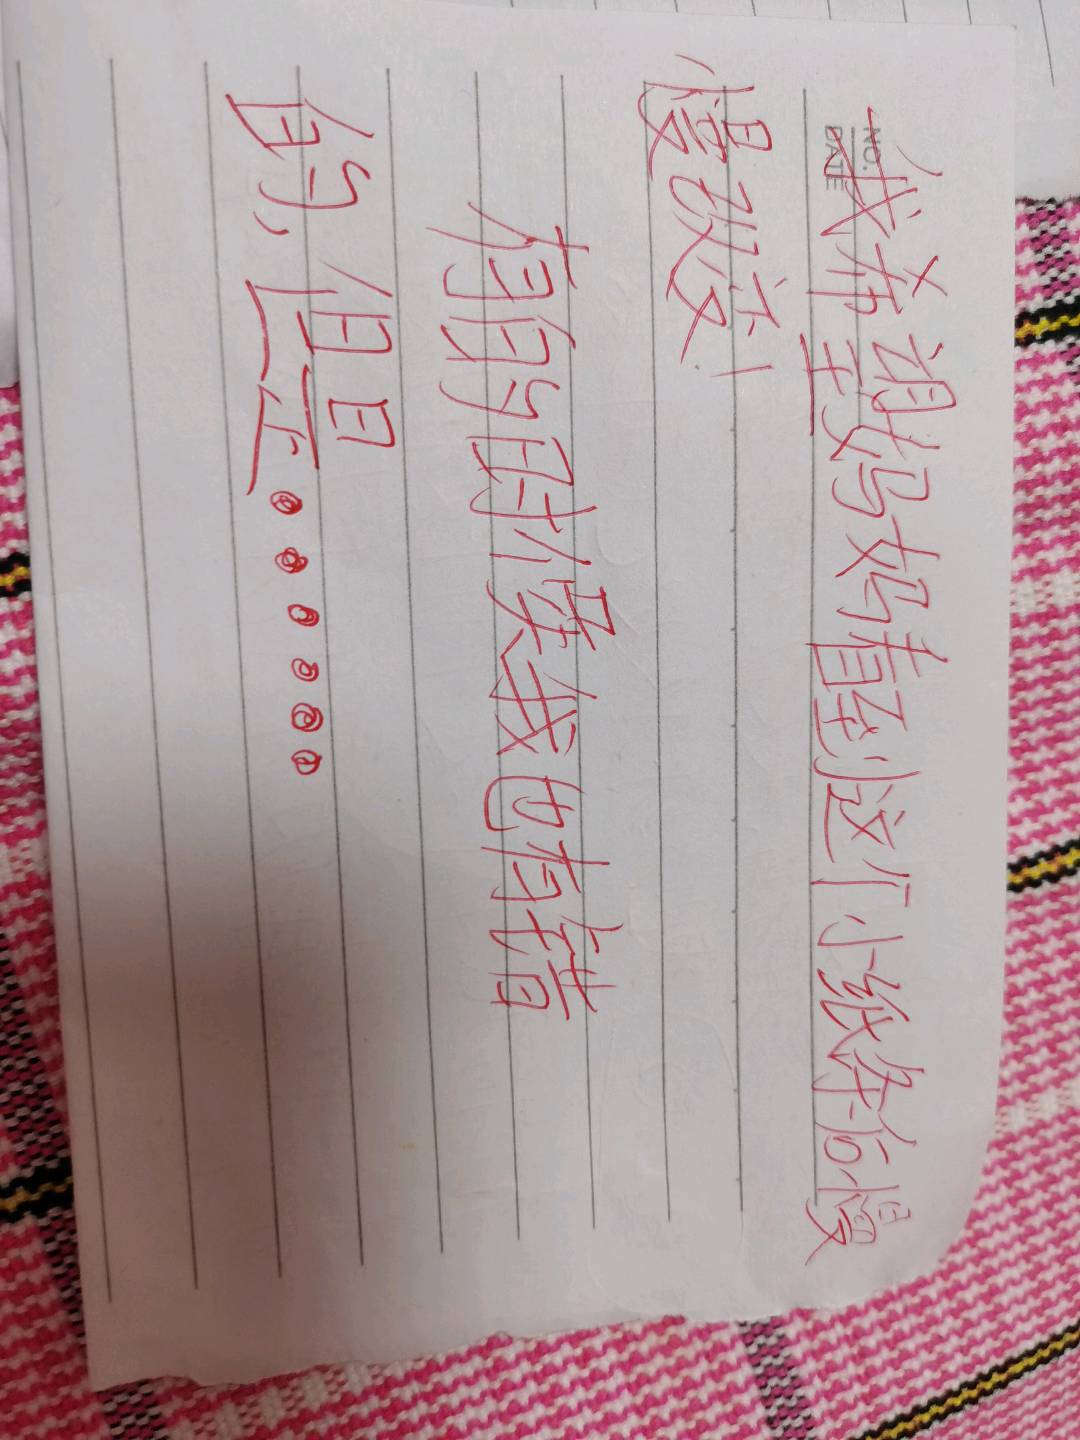 NO.
DATE
我希望妈妈看到这个小纸条后慢
慢改变!
有的时候我也有错
的,但是······